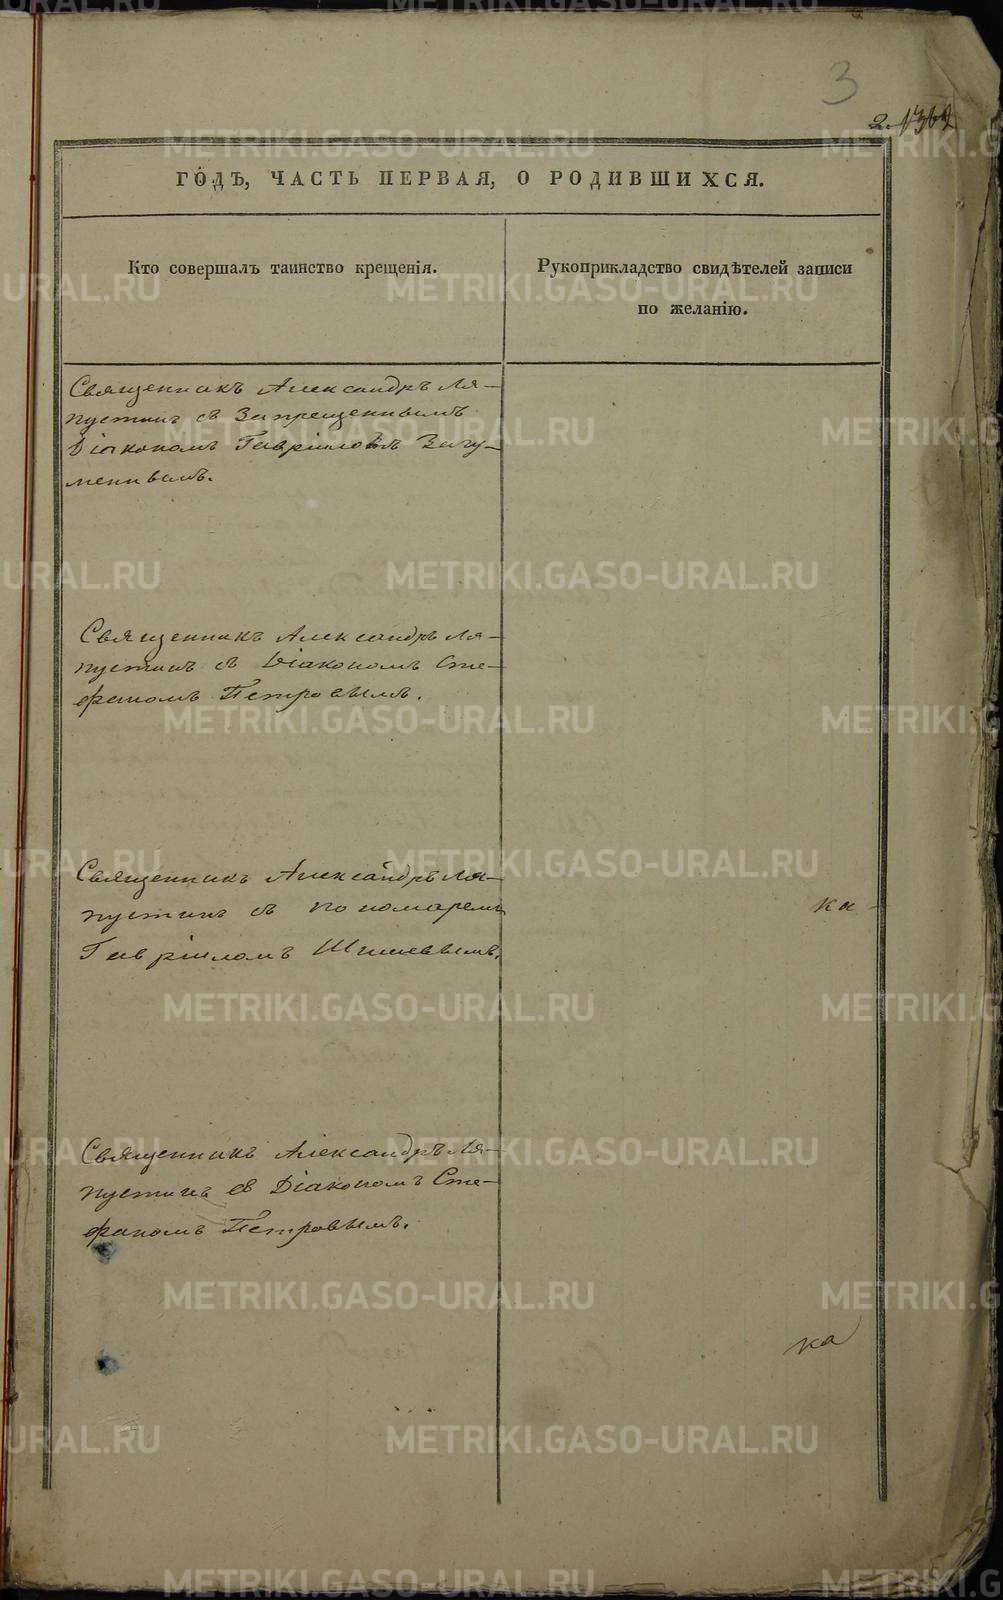 3
2.
ГОДЪ, ЧАСТЬ ПЕРВАЯ, О РОДИВШИХСЯ.
Кто совершалъ таинство крещенія.
Рукоприкладство свидѣтелей записи
по желанію.
Священникъ Александръ Ля-
пустинъ съ Запрещеннымъ
Діакономъ Гавріиломъ
Священникъ Александръ Ля-
пустинъ съ Діакономъ Сте-
фаномъ Петровымъ.
Священникъ Александръ Ля-
пустинъ съ пономаремъ
Гавріиломъ
ка
Священникъ Александръ Ля-
пустинъ съ Діакономъ Сте-
фаномъ Петровымъ.
ка
METRIKI.GASO-URAL.RU